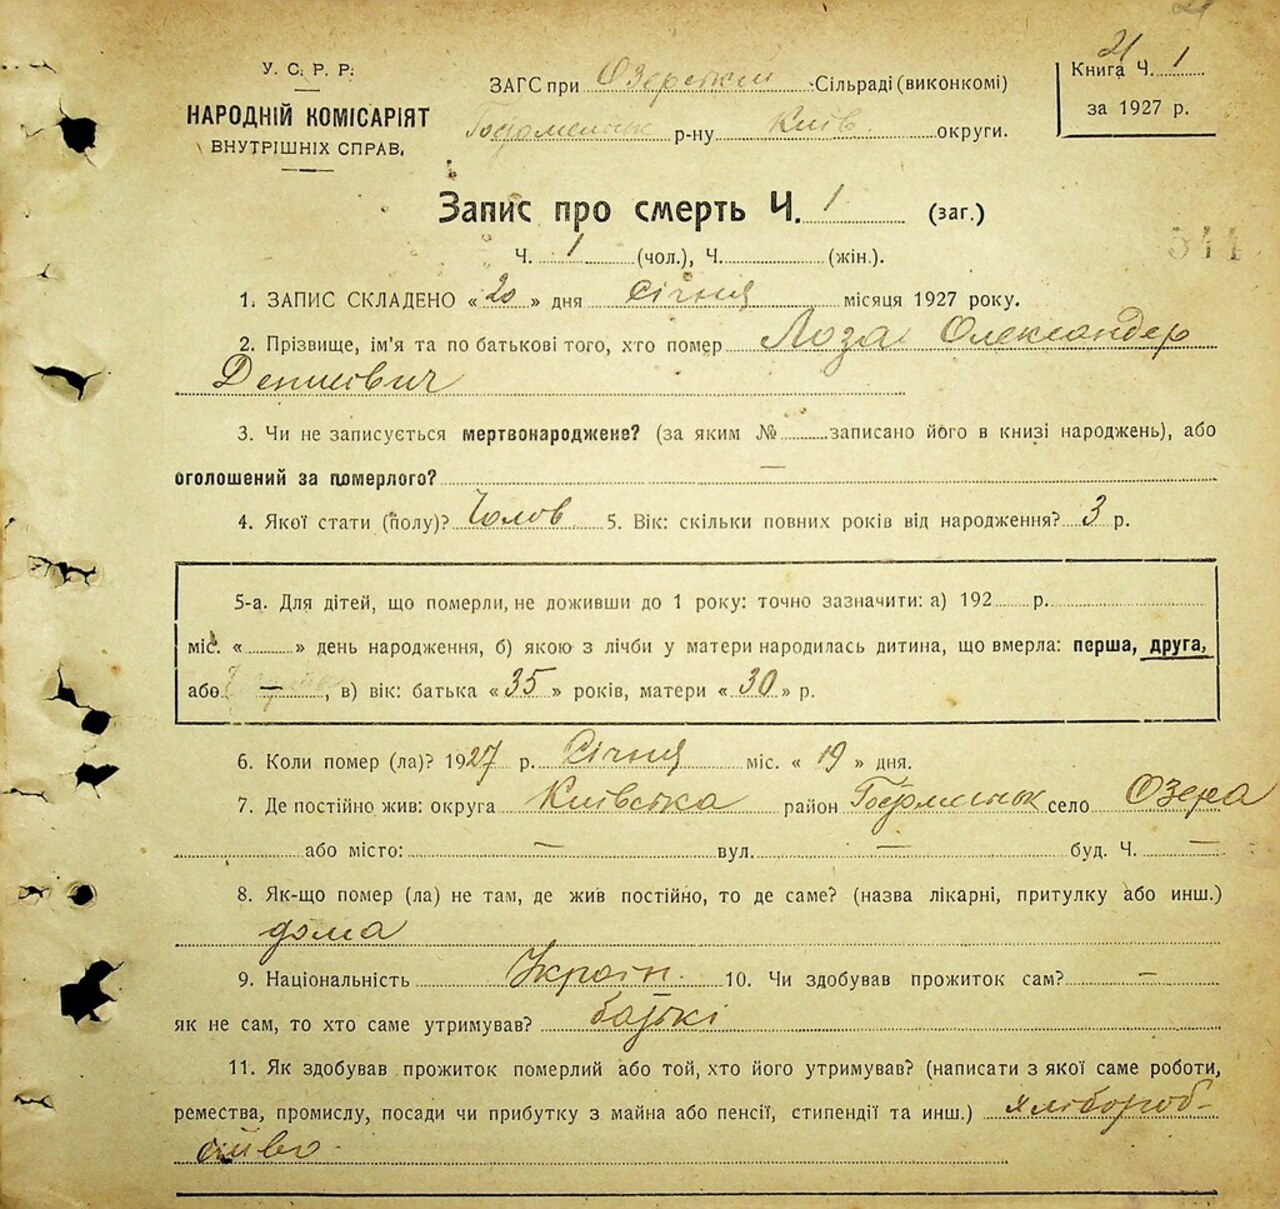 У. С. Р. Р.
НАРОДНІЙ КОМІСАРІЯТ
ВНУТРІШНІХ СПРАВ.
ЗАГС при Озерській Сільраді (виконкомі)
р-ну Київ. округи.
21
Книга Ч. 1
за 1927 р.
Запис про смерть Ч. 1 (заг.)
Ч. 1 (чол.), Ч. (жін.).
544
1. ЗАПИС СКЛАДЕНО «20» дня Січня місяця 1927 року.
2. Прізвище, ім'я та по батькові того, хто помер Лоза Олександер
Денисович
3. Чи не записується мертвонароджене? (за яким № записано його в книзі народжень), або
оголошений за померлого? —
4. Якої стати (полу)? Чолов 5. Вік: скільки повних років від народження? 3 р.
5-а. Для дітей, що померли, не доживши до 1 року: точно зазначити: а) 192 р.
міс. « » день народження, б) якою з лічби у матери народилась дитина, що вмерла: перша, друга,
або —, в) вік: батька «35» років, матери «30» р.
6. Коли помер (ла)? 1927 р. Січня міс. «19» дня.
7. Де постійно жив: округа Київська район село Озера
або місто: — вул. — буд. Ч. —
8. Як-що помер (ла) не там, де жив постійно, то де саме? (назва лікарні, притулку або инш.)
дома
9. Національність Україн. 10. Чи здобував прожиток сам? —
як не сам, то хто саме утримував? батькі
11. Як здобував прожиток померлий або той, хто його утримував? (написати з якої саме роботи,
ремества, промислу, посади чи прибутку з майна або пенсії, стипендії та инш.) хлібороб-
ство